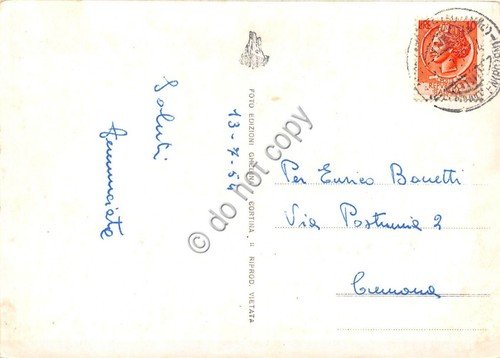 Saluti
Annunciata
13-7-54
FOTO EDIZIONI GHEDINA CORTINA, II RIPROD. VIETATA
© do not copy
Per Enrico Bonetti
Via Postumia 2
Cremona